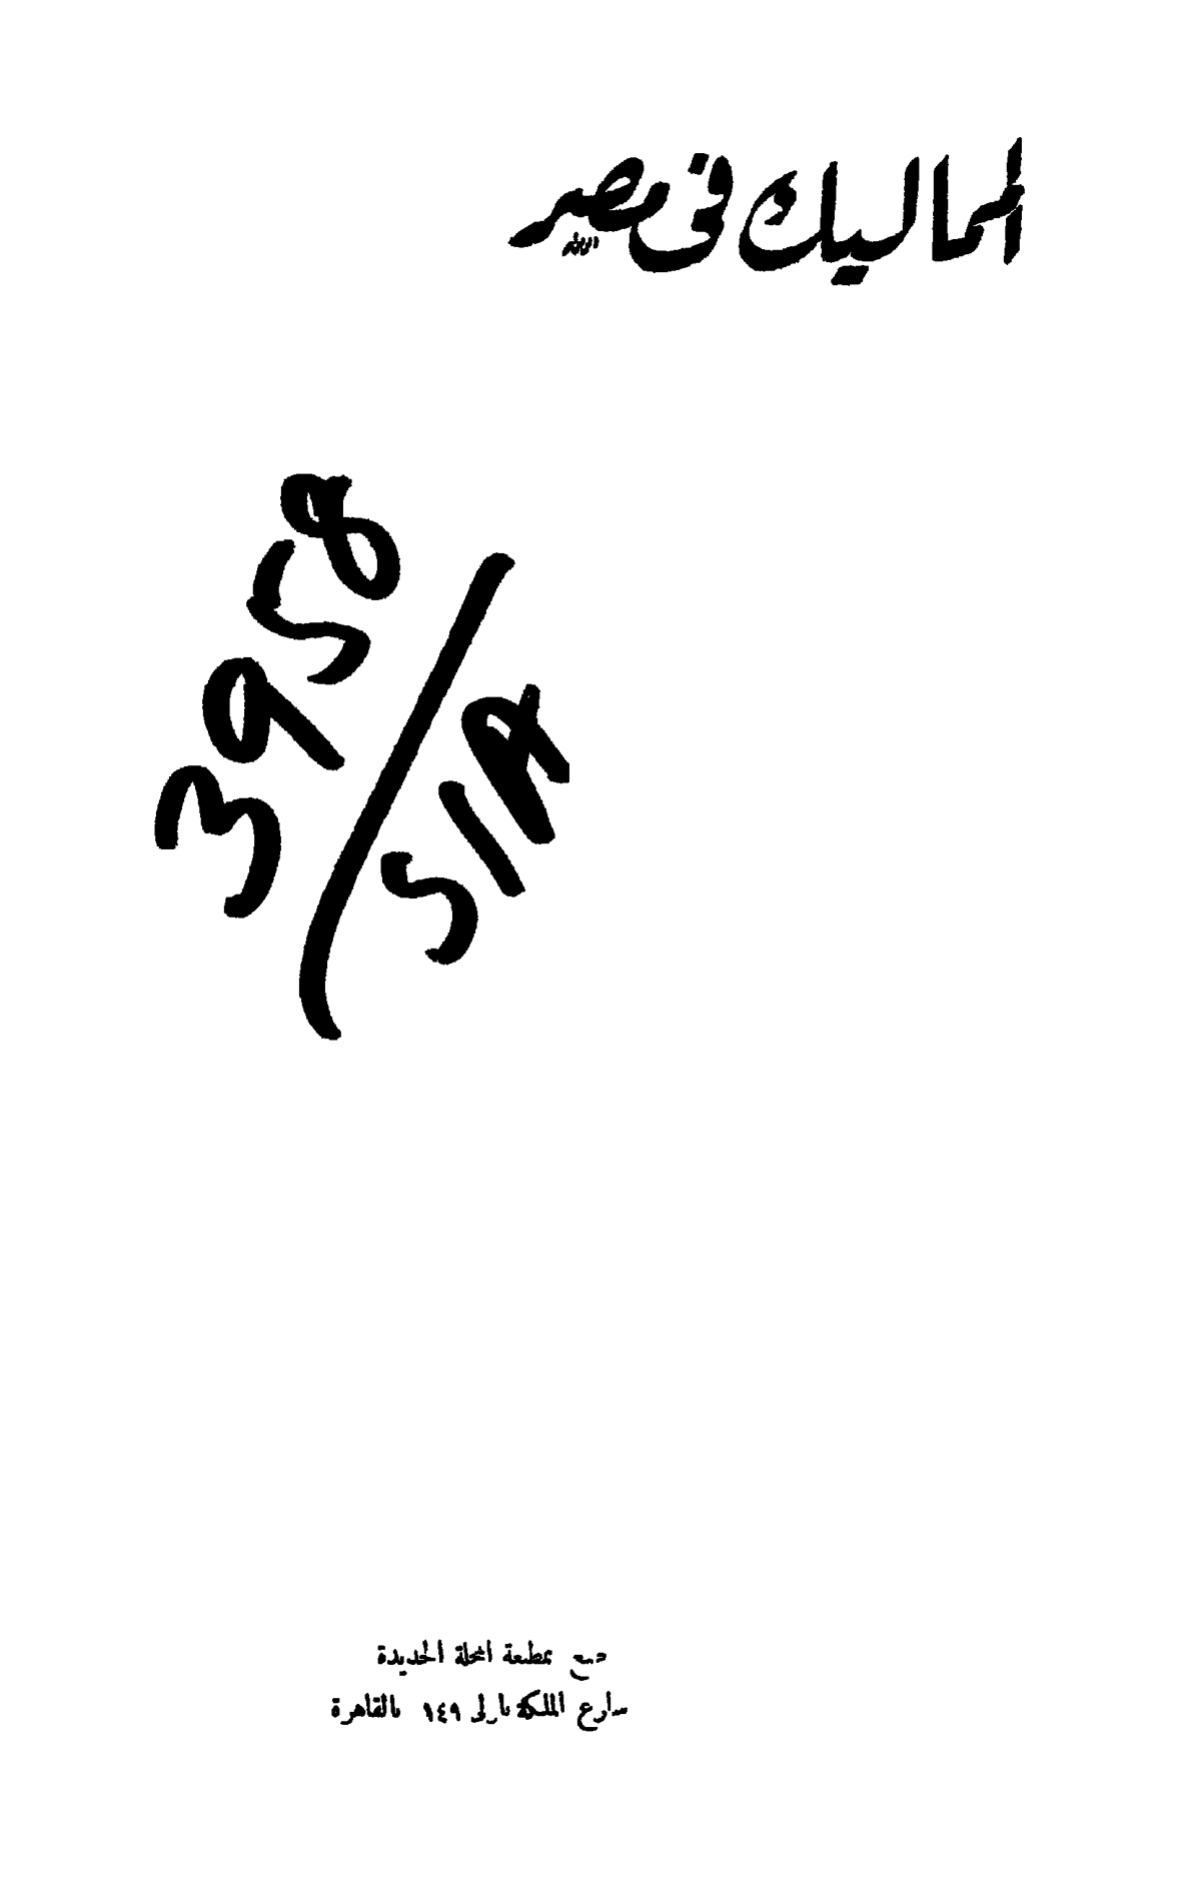 المماليك فى مصر
3958
/
51A
طبع بمطبعة المجلة الجديدة
شارع الملكة نازلى ١٤٩ بالقاهرة